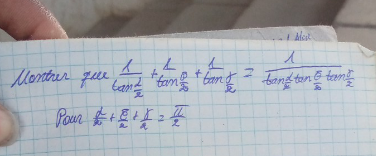 Montrer que 1/tan α/2 + 1/tan β/2 + 1/tan γ/2 = 1/(tan α/2 tan β/2 tan γ/2)
Pour α/2 + β/2 + γ/2 = π/2